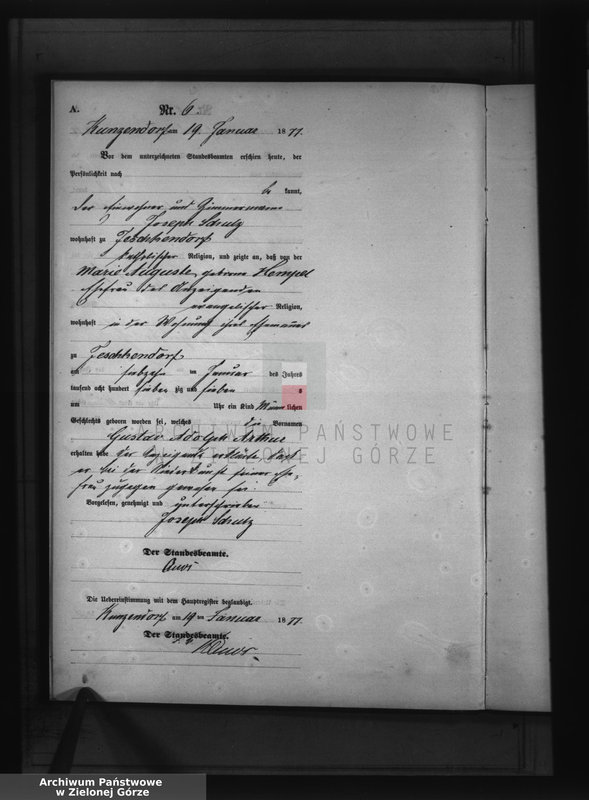 A. Nr. 6.
Kunzendorf am 19. Januar 1877.
Vor dem unterzeichneten Standesbeamten erschien heute, der
Persönlichkeit nach
be kannt,
der Einwohner und Zimmermann
Joseph Schulz
wohnhaft zu Jeschkendorf
katholischer Religion, und zeigte an, daß von der
Marie Auguste, geborene Hempel
Ehefrau des Anzeigenden
evangelischer Religion,
wohnhaft in der Wohnung ihres Ehemannes
zu Jeschkendorf
am ten Januar des Jahres
tausend acht hundert sieben zig und sieben
um Uhr ein Kind männ lichen
Geschlechts geboren worden sei, welches die Vornamen
Gustav Adolph Arthur
erhalten habe Der Anzeigende erklärte, daß
er bei der Niederkunft seiner Ehe-
frau zugegen gewesen sei.
Vorgelesen, genehmigt und unterschrieben
Joseph Schulz
Der Standesbeamte.
Die Uebereinstimmung mit dem Hauptregister beglaubigt.
Kunzendorf am 19 ten Januar 1877.
Der Standesbeamte.
ARCHIWUM PAŃSTWOWE
W ZIELONEJ GÓRZE
Archiwum Państwowe
w Zielonej Górze